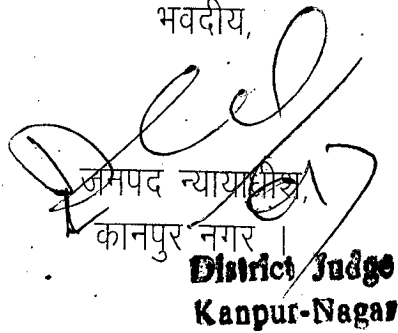 भवदीय,
जनपद न्यायाधीश,
कानपुर नगर ।
District Judge
Kanpur-Nagar